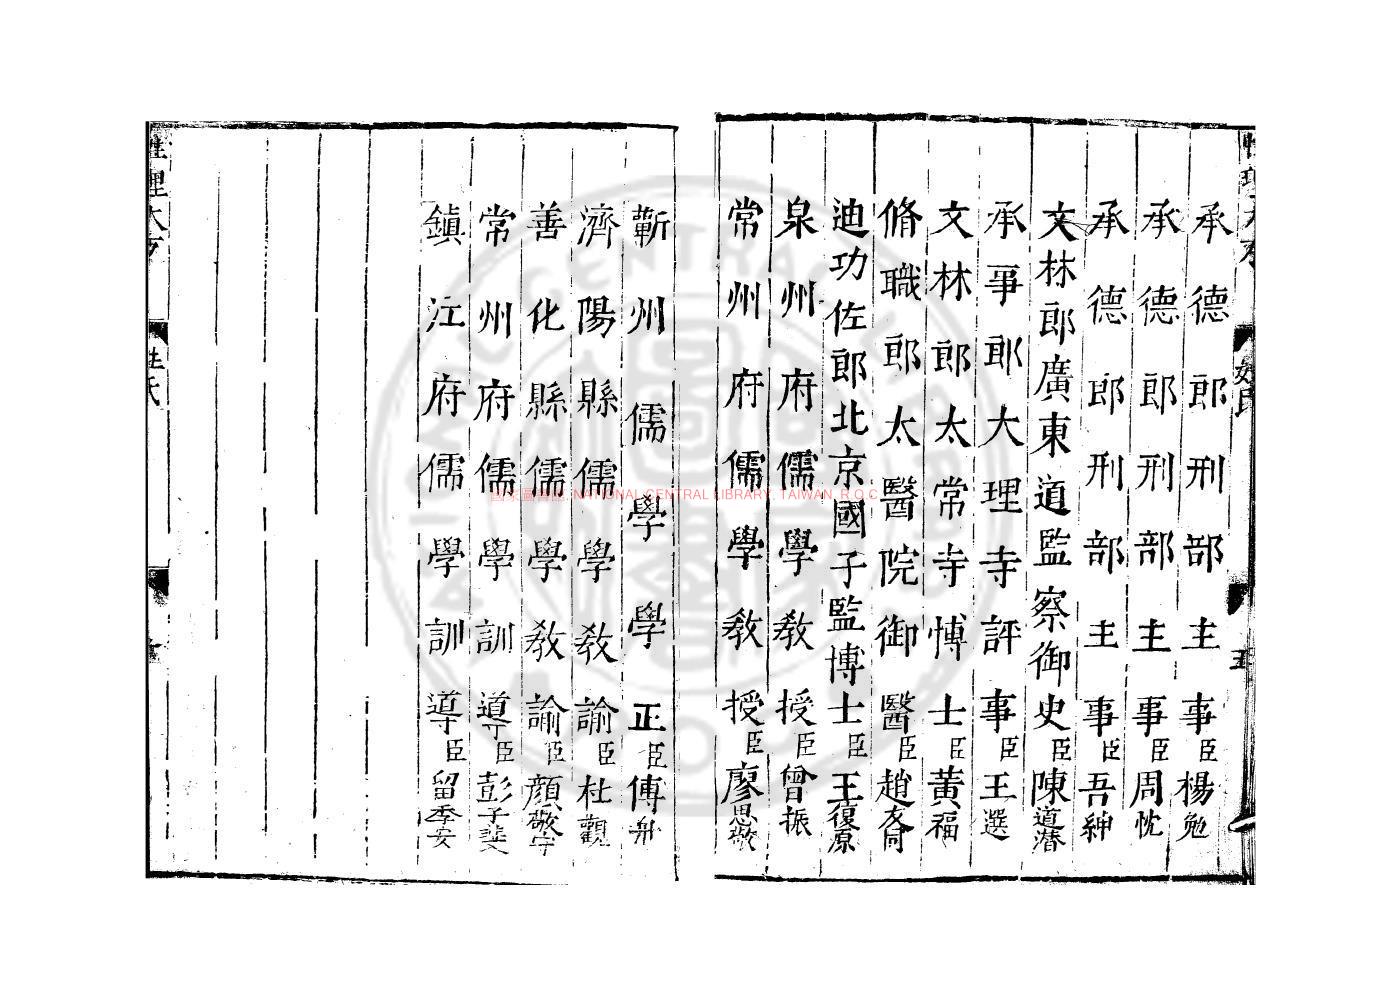 承德郎刑部主事臣楊勉
承德郎刑部主事臣周忱
承德郎刑部主事臣吾紳
文林郎廣東道監察御史臣陳道潛
承事郎大理寺評事臣王選
文林郎太常寺博士臣黃福
脩職郎太醫院御醫臣趙友同
迪功佐郎北京國子監博士臣王復原
泉州府儒學教授臣曾振
常州府儒學教授臣廖思敬
蘄州儒學學正臣傅舟
濟陽縣儒學教諭臣杜觀
善化縣儒學教諭臣顏敬守
常州府儒學訓導臣彭子斐
鎮江府儒學訓導臣留季安
性理大全
姓氏
五
國家圖書館, NATIONAL CENTRAL LIBRARY, TAIWAN, R.O.C